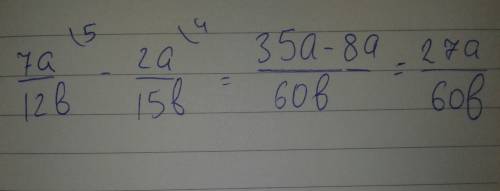 7a/12b \5 - 2a/15b \4 = 35a-8a/60b = 27a/60b